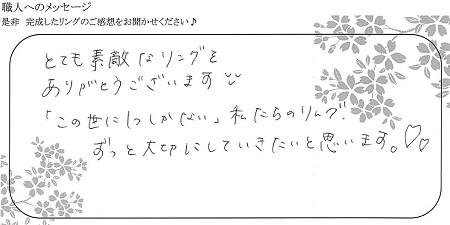 職人へのメッセージ
是非 完成したリングのご感想をお聞かせください♪
とても素敵なリングを
ありがとうございます
「この世に1つしかない」私たちのリング!
ずっと大切にしていきたいと思います。♡♡